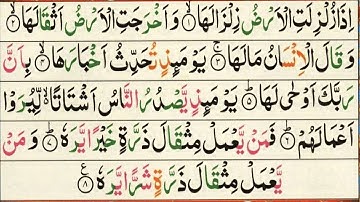 اِذَا زُلْزِلَتِ الْاَرْضُ زِلْزَالَهَا ۙ﴿۱﴾ وَ اَخْرَجَتِ الْاَرْضُ اَثْقَالَهَا ۙ﴿۲﴾
وَ قَالَ الْاِنْسَانُ مَا لَهَا ۚ﴿۳﴾ يَوْمَئِذٍ تُحَدِّثُ اَخْبَارَهَا ۙ﴿۴﴾ بِاَنَّ
رَبَّكَ اَوْحٰى لَهَا ؕ﴿۵﴾ يَوْمَئِذٍ يَّصْدُرُ النَّاسُ اَشْتَاتًا ۙ۬ لِّيُرَوْا
اَعْمَالَهُمْ ؕ﴿۶﴾ فَمَنْ يَّعْمَلْ مِثْقَالَ ذَرَّةٍ خَيْرًا يَّرَهٗ ؕ﴿۷﴾ وَ مَنْ
يَّعْمَلْ مِثْقَالَ ذَرَّةٍ شَرًّا يَّرَهٗ ﴿۸﴾